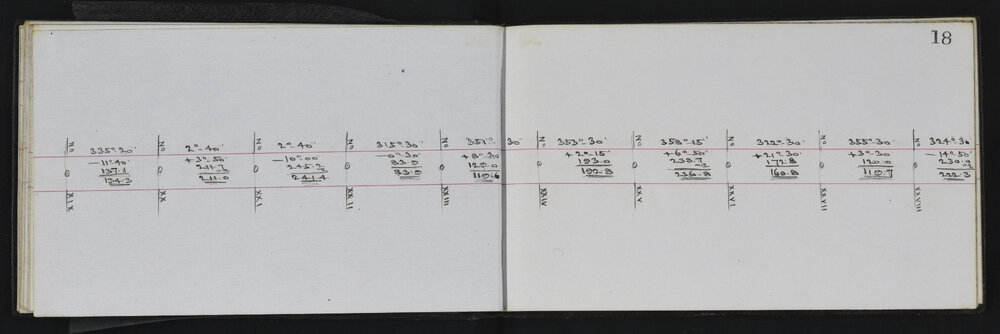 18
No
335°·20'
−11°·40'
137.1
0
134.3
XIX
No
2°-40'
+3°·50'
211.2
0
211.0
XX
No
2°·40'
−10°·00
245.2
0
241.4
XXI
No
315°·30'
−0°·30
83.9
0
83.9
XXII
No
351°·30'
+8°·30
121.0
0
119.6
XXIII
No
353°·30
+2°·15'
193.0
0
192.8
XXIV
No
353°·15'
+6°·50'
238.7
0
236.8
XXV
No
322°·30'
+21°·30
172.8
0
160.8
XXVI
No
355°·30'
+3°·30
120.0
0
119.7
XXVII
No
324°·30
−14°·50'
0
222.3
XXVIII